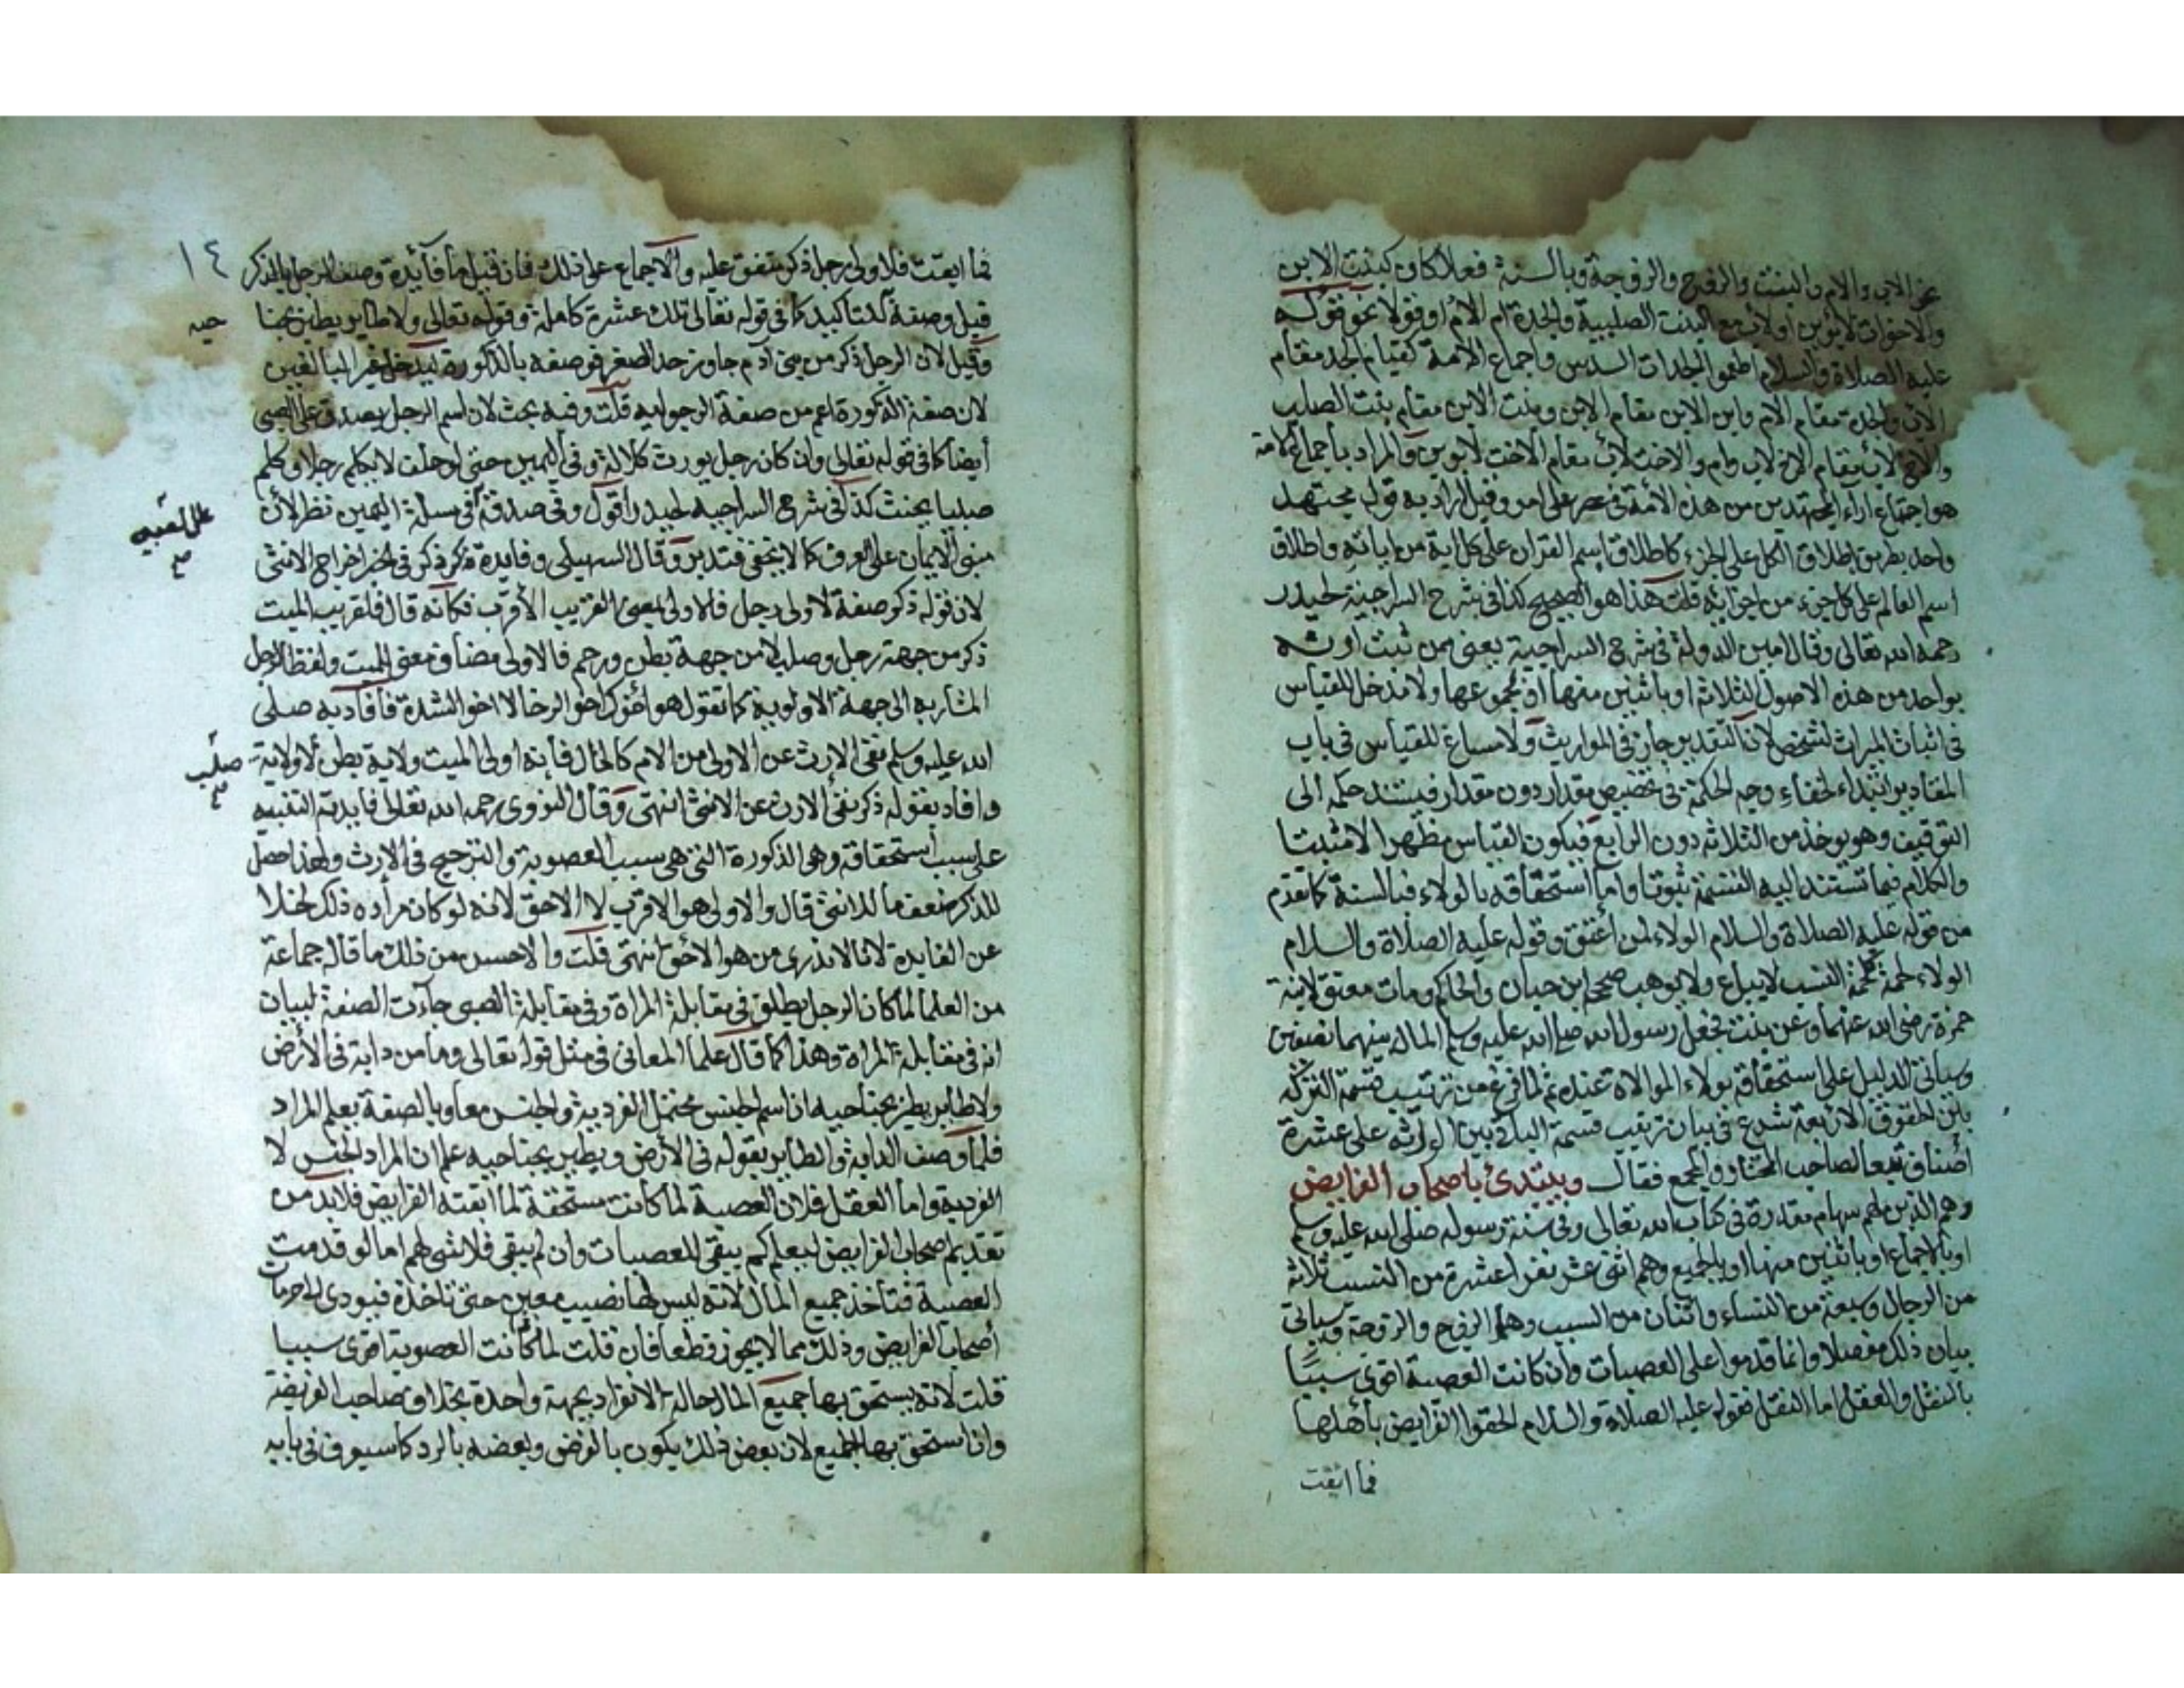 عن الاب والام والبنت والزوج والزوجة وبالسنة فعلا كان كبنت الابن
والاخوات لابوين او لاب مع البنت الصلبية والجدة ام الام او قولا نحو قوله
عليه الصلاة والسلام اطعموا الجدات السدس واجماع الامة كقيام الجد مقام
الاب والجدة مقام الام وابن الابن مقام الابن وبنت الابن مقام بنت الصلب
والاخ لاب مقام الاخ لاب وام والاخت لاب مقام الاخت لابوين والمراد باجماع الامة
هو اجتماع اراء المجتهدين من هذه الامة في عصر على امر وقيل اراد به قول مجتهد
واحد بطريق اطلاق الكل على الجزء كاطلاق اسم القران على كل اية من اياته واطلاق
اسم العالم على كل جزء من اجزائه قلت هذا هو الصحيح كذا في شرح السراجية لحيدر
رحمه الله تعالى وقال امين الدولة في شرح السراجية يعني من ثبت ارثه
بواحد من هذه الاصول الثلاثة او باثنين منها او بمجموعها ولا مدخل للقياس
في اثبات الميراث لشخص لان التقدير جار في المواريث ولا مساغ للقياس في باب
المقادير ابتداء لخفاء وجه الحكمة في تخصيص مقدار دون مقدار فيستند حكمه الى
التوقيف وهو يوخذ من الثلاثة دون الرابع فيكون القياس مظهرا لا مثبتا
والكلام فيما تستند اليه القسمة ثبوتا واما استحقاقه بالولاء فبالسنة كما تقدم
من قوله عليه الصلاة والسلام الولاء لمن أعتق وقوله عليه الصلاة والسلام
الولاء لحمة كلحمة النسب لا يباع ولا يوهب صححه ابن حبان والحاكم ومات معتق لابنة
حمزة رضى الله عنهما وعن بنت فجعل رسول الله صلى الله عليه وسلم المال بينهما نصفين
وسياتى الدليل على استحقاقه بولاء الموالاة عنده ثم لما فرغ من ترتيب قسمة التركة
بين الحقوق الاربعة شرع في بيان ترتيب قسمة الباقي بين الوارثه على عشرة
أصناف تبعا لصاحب المختار والمجمع فقال ويبتدئ باصحاب الفرايض
وهم الذين لهم سهام مقدرة في كتاب الله تعالى وفى سنة رسوله صلى الله عليه وسلم
او بالاجماع او باثنين منها او بالجميع وهم اثنى عشر نفرا عشرة من النسب ثلاثة
من الرجال وسبعة من النساء واثنان من السبب وهما الزوج والزوجة وسياتى
بيان ذلك مفصلا وانما قدموا على العصبات وان كانت العصبة اقوى سببًا
بالنقل والعقل اما النقل فقوله عليه الصلاة والسلام الحقوا الفرايض بأهلها
فما ابقت
١٤
فما ابقت فلاولى رجل ذكر متفق عليه والاجماع على ذلك فان قيل ما فآئدة وصف الرجل بالذكر
قيل وصفه للتاكيد كما في قوله تعالى تلك عشرة كاملة وقوله تعالى ولا طاير يطير بجنا
حيه
وقيل لان الرجل ذكر من بنى آدم جاوز حد الصغر فوصفه بالذكورة ليدخل غير البالغين
لان صفة الذكورة اعم من صفة الرجوليه قلت وفيه بحث لان اسم الرجل يصدق على الصبى
أيضا كما في قوله تعالى وان كان رجل يورث كلالة وفي اليمين حتى لو حلف لا يكلم رجلا وكلم
صبيا يحنث كذا في شرح السراجيه لحيدر أقول وفى صدقه فى مسلة اليمين نظر لأن
مبنى الايمان على العرف كما لا يخفى فتدبر وقال السهيلى وفايدة ذكر ذكر في الخبر اخراج الانثى
لان قوله ذكر صفة لاولى لا رجل فالاولى بمعنى القريب الأقرب فكأنه قال فلقريب الميت
ذكر من جهة رجل وصلب لا من جهة بطن ورحم فالاولى مضاف معنى للميت ولفظا للرجل
المشار به الى جهة الاولوية كما تقول هو أخوك اخو الرخا لا اخو الشدة فأفاد به صلى
الله عليه وسلم نفى الارث عن الاولى من الام كالخال فأنه اولى الميت ولاية بطن لا ولاية
صلب
وافاد بقوله ذكر نفى الارث عن الانثى انتهى وقال النووى رحمه الله تعالى فايدته التنبيه
على سبب أستحقاقه وهى الذكورة التى هى سبب العصوبة والترجيح في الارث ولهذا جعل
للذكر ضعف ما للانثى قال والاولى هو الاقرب لا الاحق لانه لو كان مراده ذلك لخلا
عن الفايدة لانا لا ندرى من هو الاحق انتهى قلت والاحسن من ذلك ما قاله جماعة
من العلما لما كان الرجل يطلق في مقابلة المراة وفى مقابلة الصبى جاءت الصفة لبيان
انه في مقابلة المراة وهذا كما قال علما المعانى في مثل قوله تعالى وما من دابة في الأرض
ولا طاير يطير بجناحيه ان اسم الجنس يحتمل الفردية والجنس معا وبالصفة يعلم المراد
فلما وصف الدابة والطاير بقوله في الأرض ويطير بجناحيه علم ان المراد الجنس لا
الفردية واما العقل فلان العصبة لما كانت مستحقة لما ابقته الفرايض فلابد من
تقديم اصحاب الفرايض ليعلم كم يبقى للعصبات وان لم يبقى فلا شى لهم اما لو قدمت
العصبة فتاخذ جميع المال لانه ليس لها نصيب معين حتى تاخذه فيودى الى حرمان
أصحاب الفرايض وذلك مما لا يجوز قطعا فان قلت لما كانت العصوبة اقوى سببا
قلت لانه يستحق بها جميع المال حالة الانفراد بجهة واحدة بخلاف صاحب الفريضة
وان استحق بها الجميع لان بعض ذلك يكون بالفرض وبعضه بالرد كما سيعرف فى بابه